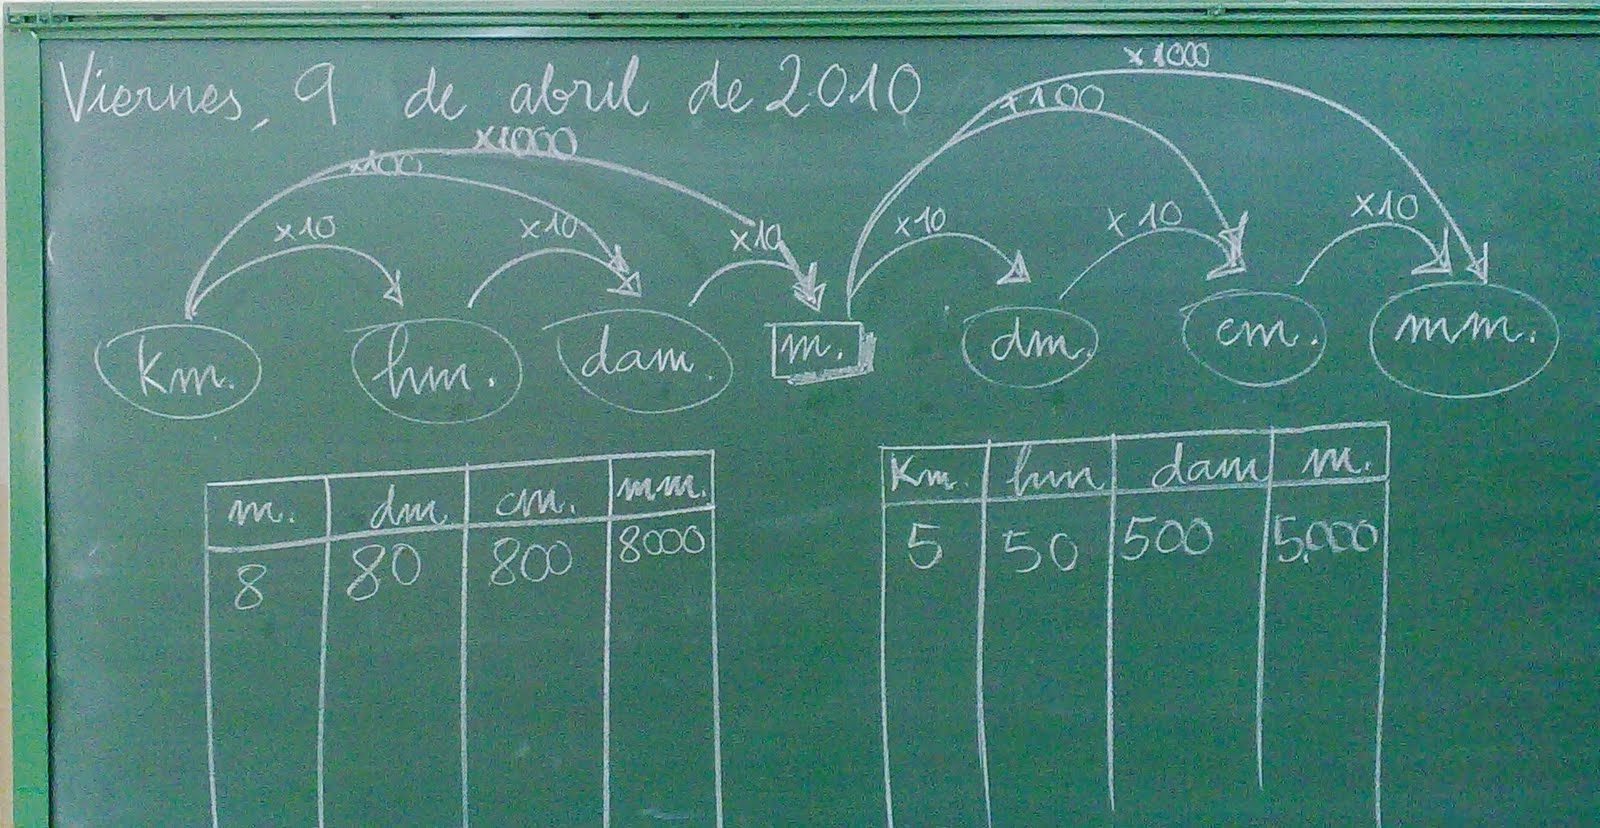 Viernes, 9 de abril de 2010
x1000
x100
x1000
x100
x10 x10 x10 x10 x10 x10
Km. hm. dam. m. dm. cm. mm.
m. dm. cm. mm.
8 80 800 8000
Km. hm dam m.
5 50 500 5.000